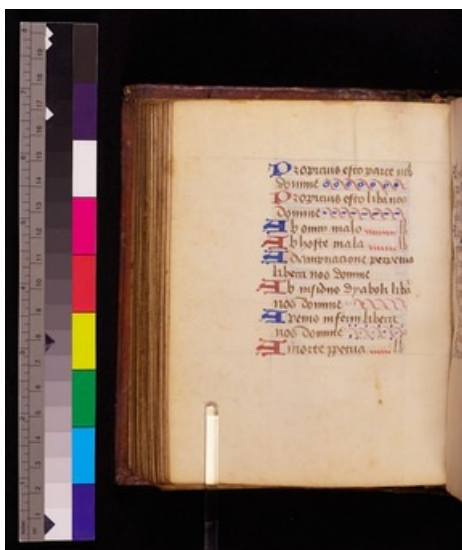 Propicius esto parce nob
domine
Propicius esto liba nos
domine
Ab omni malo
Ab hoste malo
A dampnacione perpetua
libera nos domine
Ab insidiis dyaboli liba
nos domine
A penis inferni libera
nos domine
A morte ppetua